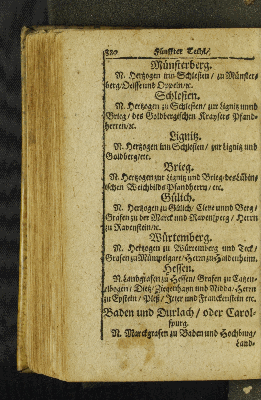 320 Fünffter Theil/
Münsterberg.
N. Hertzogen inn Schlesien / zu Münster-
berg/ Oelsse und Oppeln/ꝛc.
Schlesien.
N. Hertzogen zu Schlesien/ zur Lignitz unnd
Brieg/ des Goldbergischen Kraysers Pfand-
herren/ꝛc.
Lignitz.
N. Hertzogen inn Schlesien / zur Lignitz und
Goldberg/etc.
Brieg.
N. Hertzogen zur Lignitz und Brieg/ des
ischen Weichbilds Pfandherrn/ etc.
Gülich.
N. Hertzogen zu Gülich/ Cleve unnd Berg/
Grafen zu der Marck und Ravensperg / Herrn
zu Ravenstein/ꝛc.
Würtemberg.
N. Hertzogen zu Würtemberg und Teck/
Grafen zu Mümpelgart/ Herrn zu Haidenheim.
Hessen.
N. Landgrafen zu Hessen/ Grafen zu Catzen-
elbogen/ Dietz/ Ziegenhayn und Nidda/ Herrn
zu Epstein / Pleß/ Itter und Franckenstein etc.
Baden und Durlach/ oder Carol-
spurg.
N. Marckgrafen zu Baden und Hochburg/
Land-